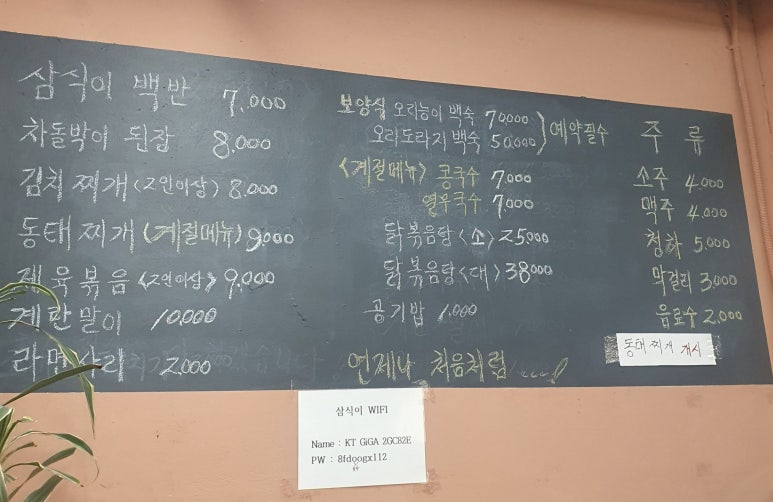 삼식이 백반 7,000
차돌박이 된장 8,000
김치찌개 (2인이상) 8,000
동태찌개 (계절메뉴) 9,000
제육볶음 <2인이상> 9,000
계란말이 10,000
라면사리 2,000
보양식 오리능이 백숙 70,000
오리도라지 백숙 50,000
예약필수
<계절메뉴> 콩국수 7,000
열무국수 7,000
닭볶음탕 <소> 25,000
닭볶음탕 <대> 38,000
공기밥 1,000
언제나 처음처럼 .....!
주 류
소주 4,000
맥주 4,000
청하 5,000
막걸리 3,000
음료수 2,000
동태찌개 개시
삼식이 WIFI
Name : KT GiGA 2GC82E
PW : 8fdoogx112